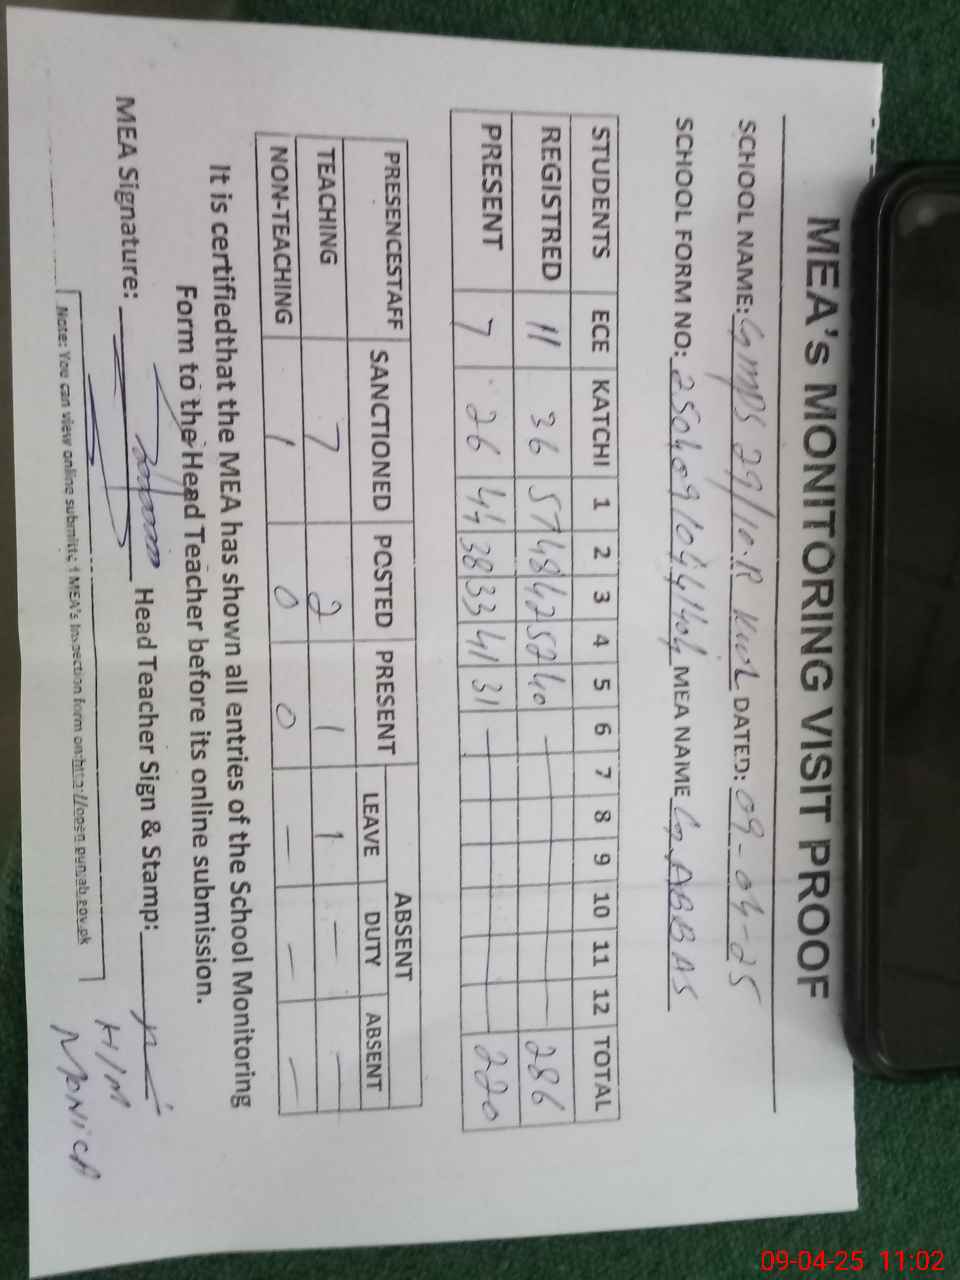 MEA's MONITORING VISIT PROOF
SCHOOL NAME: GMPS 29/10.R KWL DATED: 09-04-25
SCHOOL FORM NO: MEA NAME G. ABBAS
STUDENTS ECE KATCHI 1 2 3 4 5 6 7 8 9 10 11 12 TOTAL
REGISTRED 11 36 57 48 42 52 40 — 286
PRESENT 7 26 44 38 33 41 31 — 220
PRESENCESTAFF SANCTIONED POSTED PRESENT ABSENT
LEAVE DUTY ABSENT
TEACHING 7 2 1 1 — —
NON-TEACHING 1 0 0 — — —
It is certifiedthat the MEA has shown all entries of the School Monitoring
Form to the Head Teacher before its online submission.
MEA Signature: Head Teacher Sign & Stamp:
H/M
MONICA
Note: You can view online submitted MEA's Inspection form on:http://open.punjab.gov.pk
09-04-25 11:02